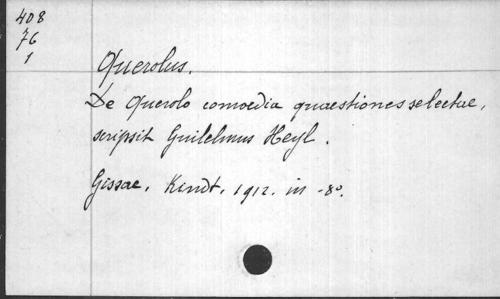 408
76
1
Querolus.
De Querolo comoedia quaestiones selectae,
scripsit Guilelmus Heyl.
Gissae, Kindt, 1912. in -8°.